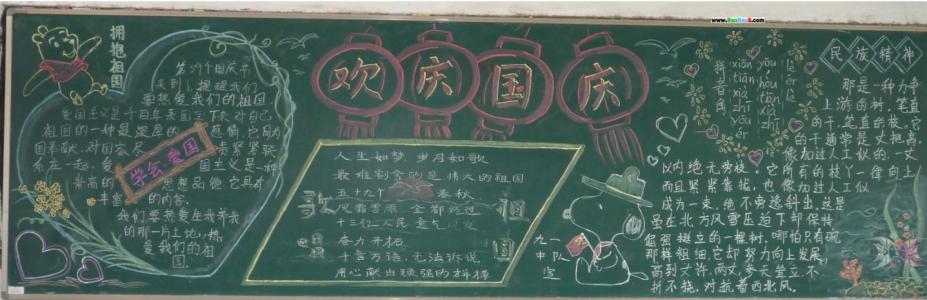 拥抱祖国
第59个国庆节
来到了，提醒我们
要热爱我们的祖国
爱国主义是千百年来固定下来对自己
祖国的一种最深厚的
学会爱国
国主义是一种
崇高的
思想品德，它具有
丰富
的内容。
我们要热爱生我养我
的那一片土地，热
爱我们的祖
国。
欢庆国庆
人生如梦 岁月如歌
最难割舍的是伟大的祖国
五十九个
春秋
风霜雪雨 全部经过
十三亿人民
奋力开拓
千言万语，无法诉说
用心献出顽强的拼搏
九一
中队
宣
拼音角
xiān yōu
tiān hòu
zhī
yōu
ér
民族精神
那是一种力争
上游的树，笔直
的干，笔直的枝。它
的干通常是丈把高，
像加过人工似的，一丈
以内绝无旁枝。它所有的枝丫一律向上，
而且紧紧靠拢，也像加过人工似
成为一束，绝不旁逸斜出。这是
虽在北方风雪压迫下却保持
倔强挺立的一棵树。哪怕只有碗
那样粗细，它却努力向上发展，
高到丈许，两丈，参天耸立，不
折不挠，对抗着西北风。